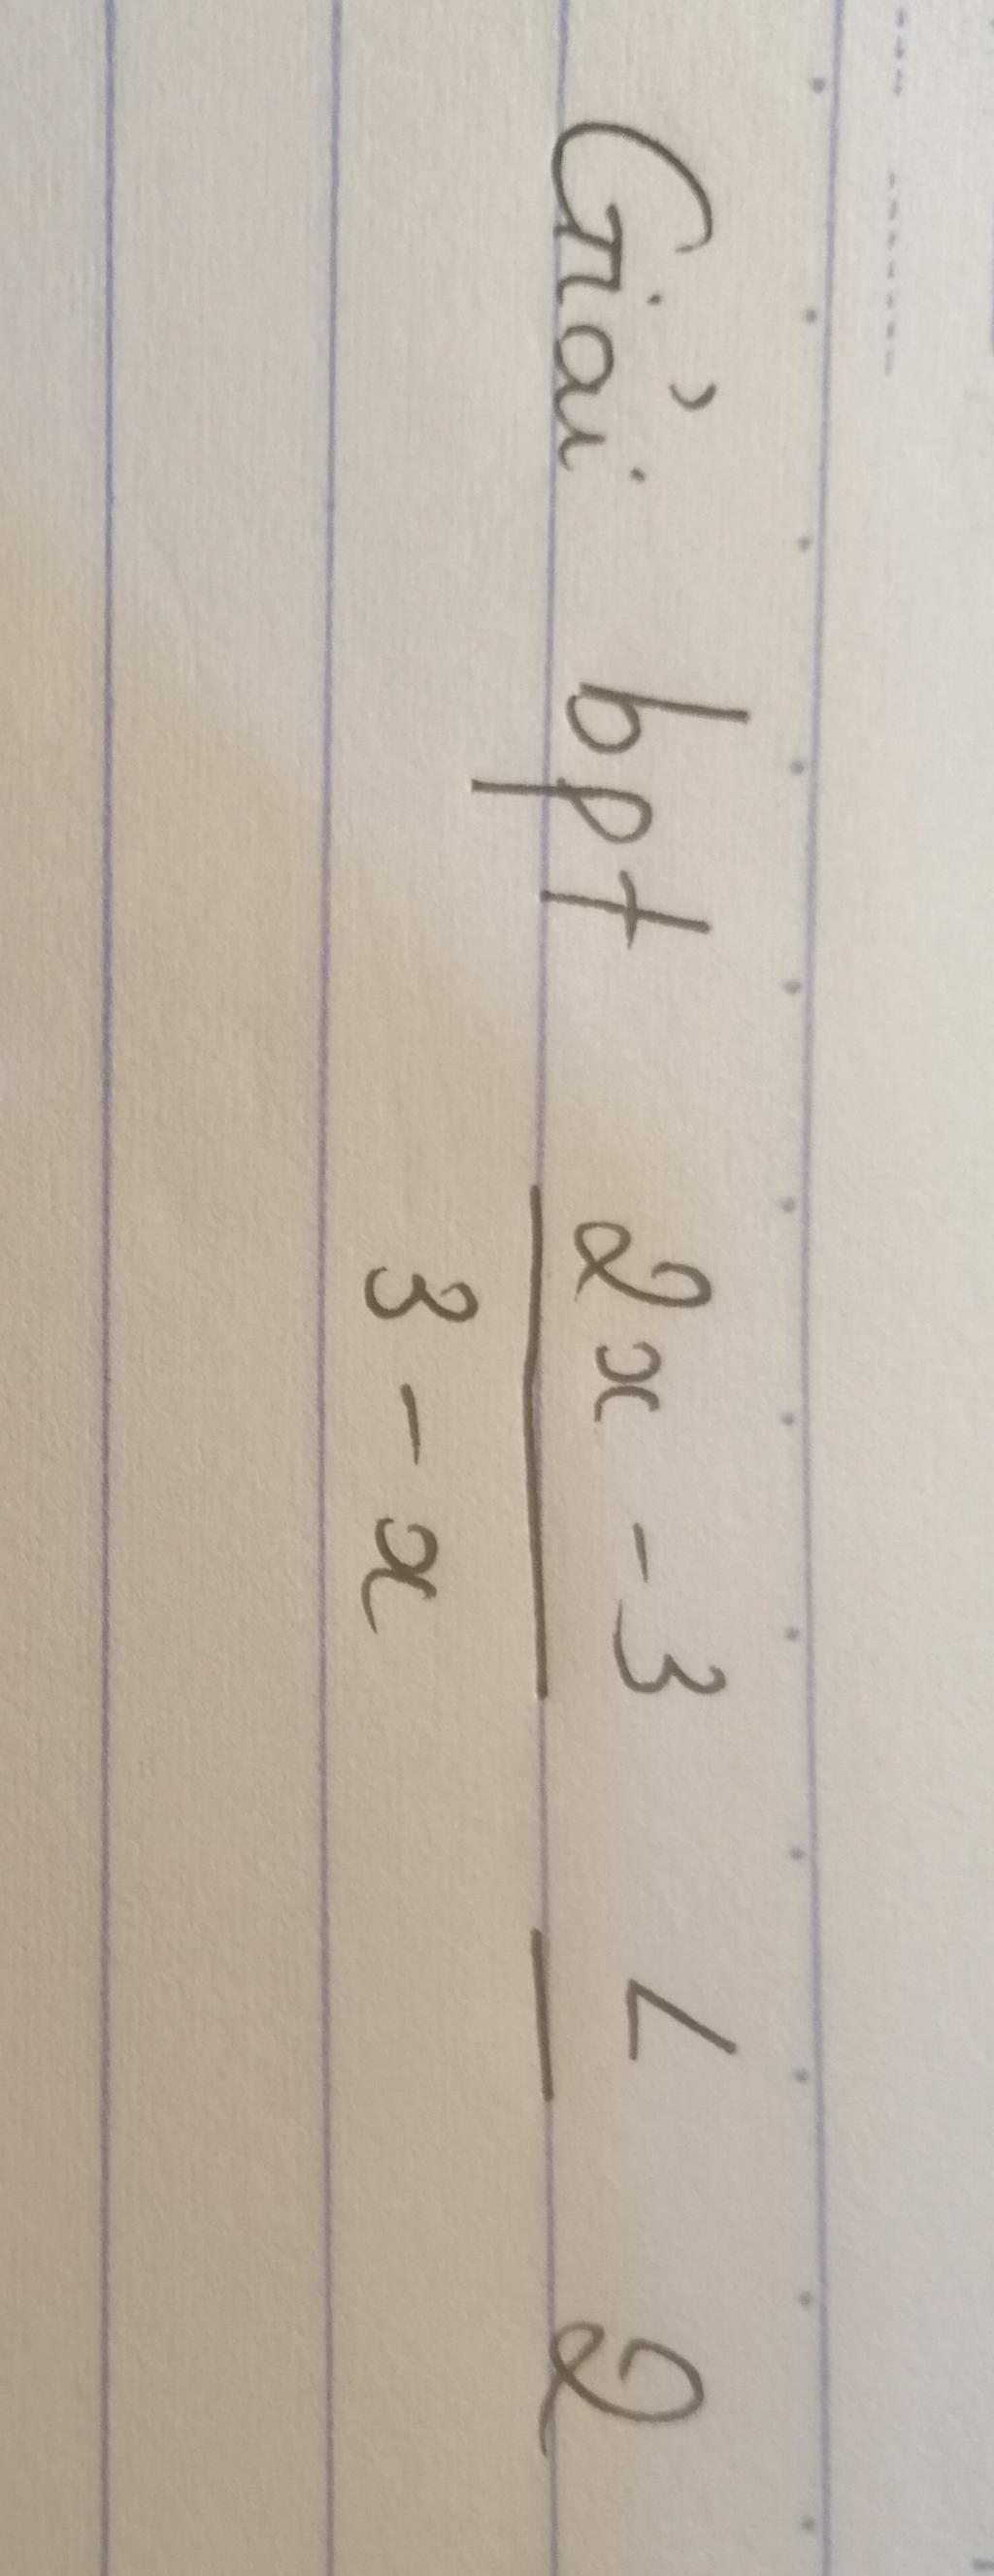 Giải bpt (2x - 3)/(3 - x) ≤ 2